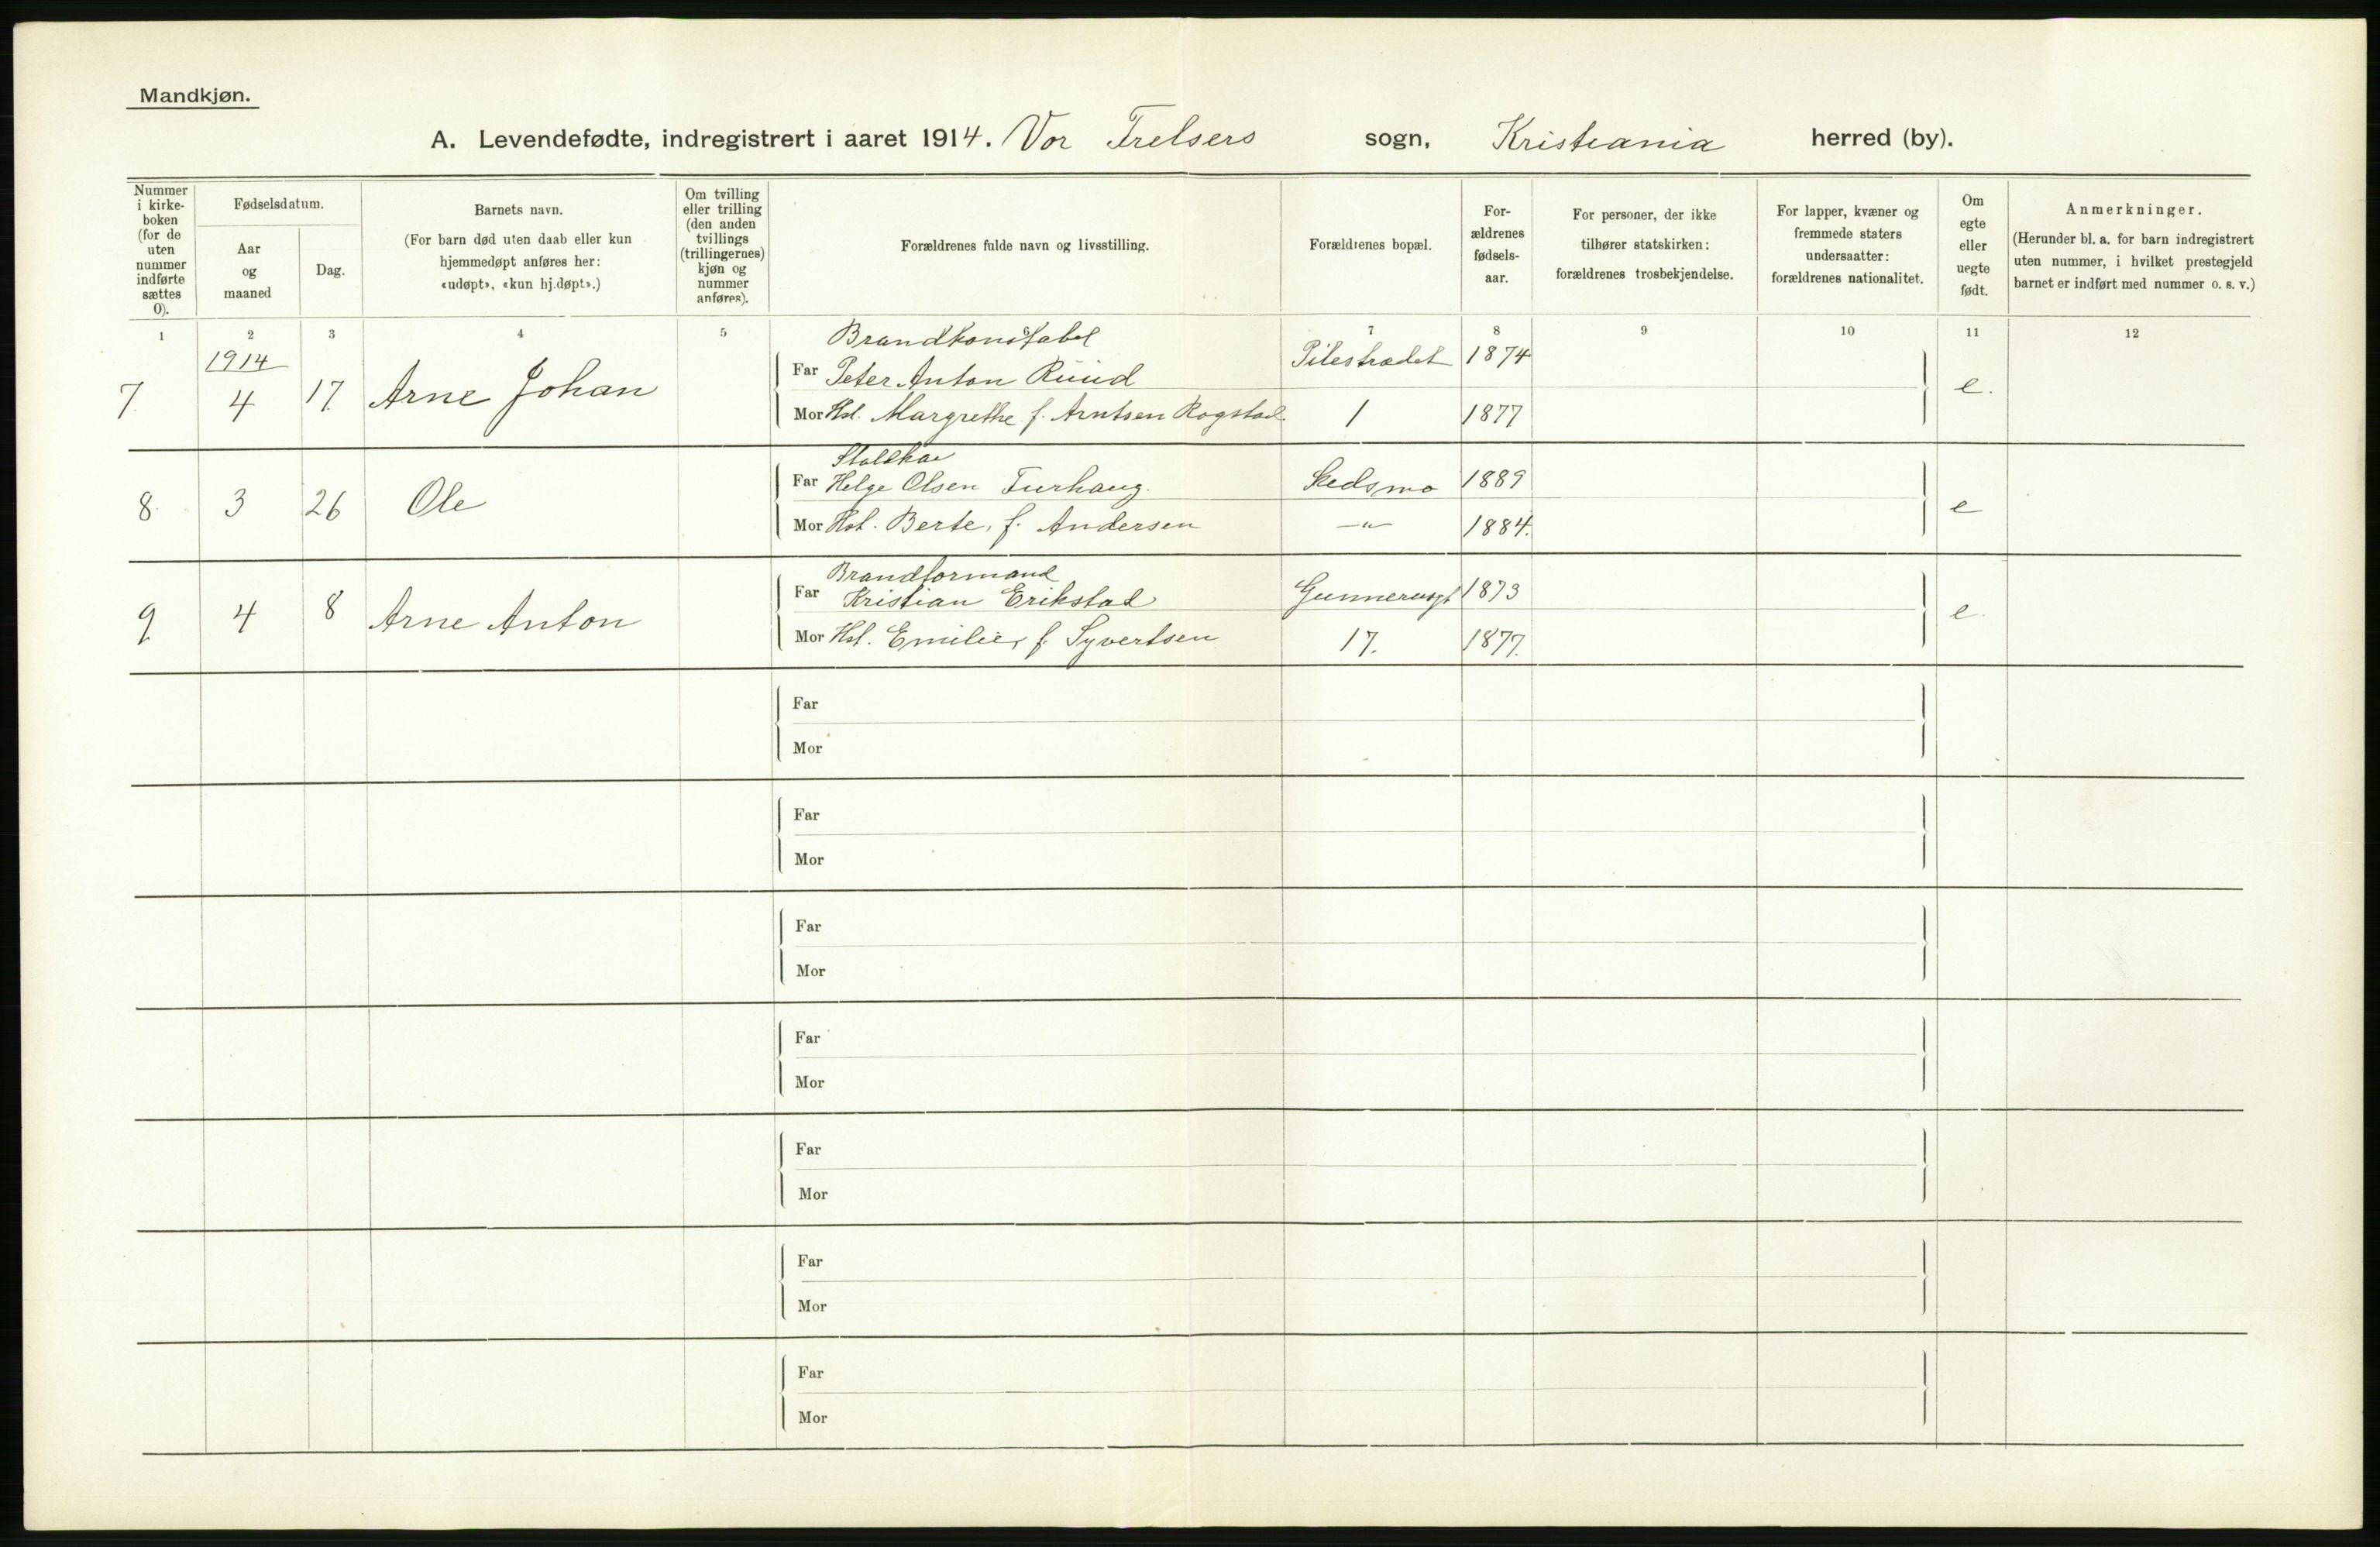 Mandkjøn.
A. Levendefødte, indregistrert i aaret 1914. Vor Frelsers sogn, Kristiania herred (by).
Nummer i kirke-boken (for de uten nummer indførte sættes 0).
Fødselsdatum.
Aar og maaned
Dag.
Barnets navn.
(For barn død uten daab eller kun hjemmedøpt anføres her: «udøpt», «kun hj.døpt».)
Om tvilling eller trilling (den anden tvillings (trillingernes) kjøn og nummer anføres).
Forældrenes fulde navn og livsstilling.
Forældrenes bopæl.
For-ældrenes fødsels-aar.
For personer, der ikke tilhører statskirken: forældrenes trosbekjendelse.
For lapper, kvæner og fremmede staters undersaatter: forældrenes nationalitet.
Om egte eller uegte født.
Anmerkninger.
(Herunder bl. a. for barn indregistrert uten nummer, i hvilket prestegjeld barnet er indført med nummer o. s. v.)
1 2 3 4 5 6 7 8 9 10 11 12
1914
Brandkonstabel
7. 4 17. Arne Johan Far Peter Anton Ruud Pilestrædet 1874 e.
Mor Hst. Margrethe f. Arntsen Rogstad. 1 1877
8. 3 26 Ole Far Helge Olsen Furhaug. Skedsmo 1889 e
Mor Hst. Berte, f. Andersen —"— 1884.
Brandformand
9 4 8 Arne Anton Far Kristian Erikstad Gunnerusgt 1873 e.
Mor Hst. Emilie, f. Syvertsen 17. 1877.
Far
Mor
Far
Mor
Far
Mor
Far
Mor
Far
Mor
Far
Mor
Far
Mor